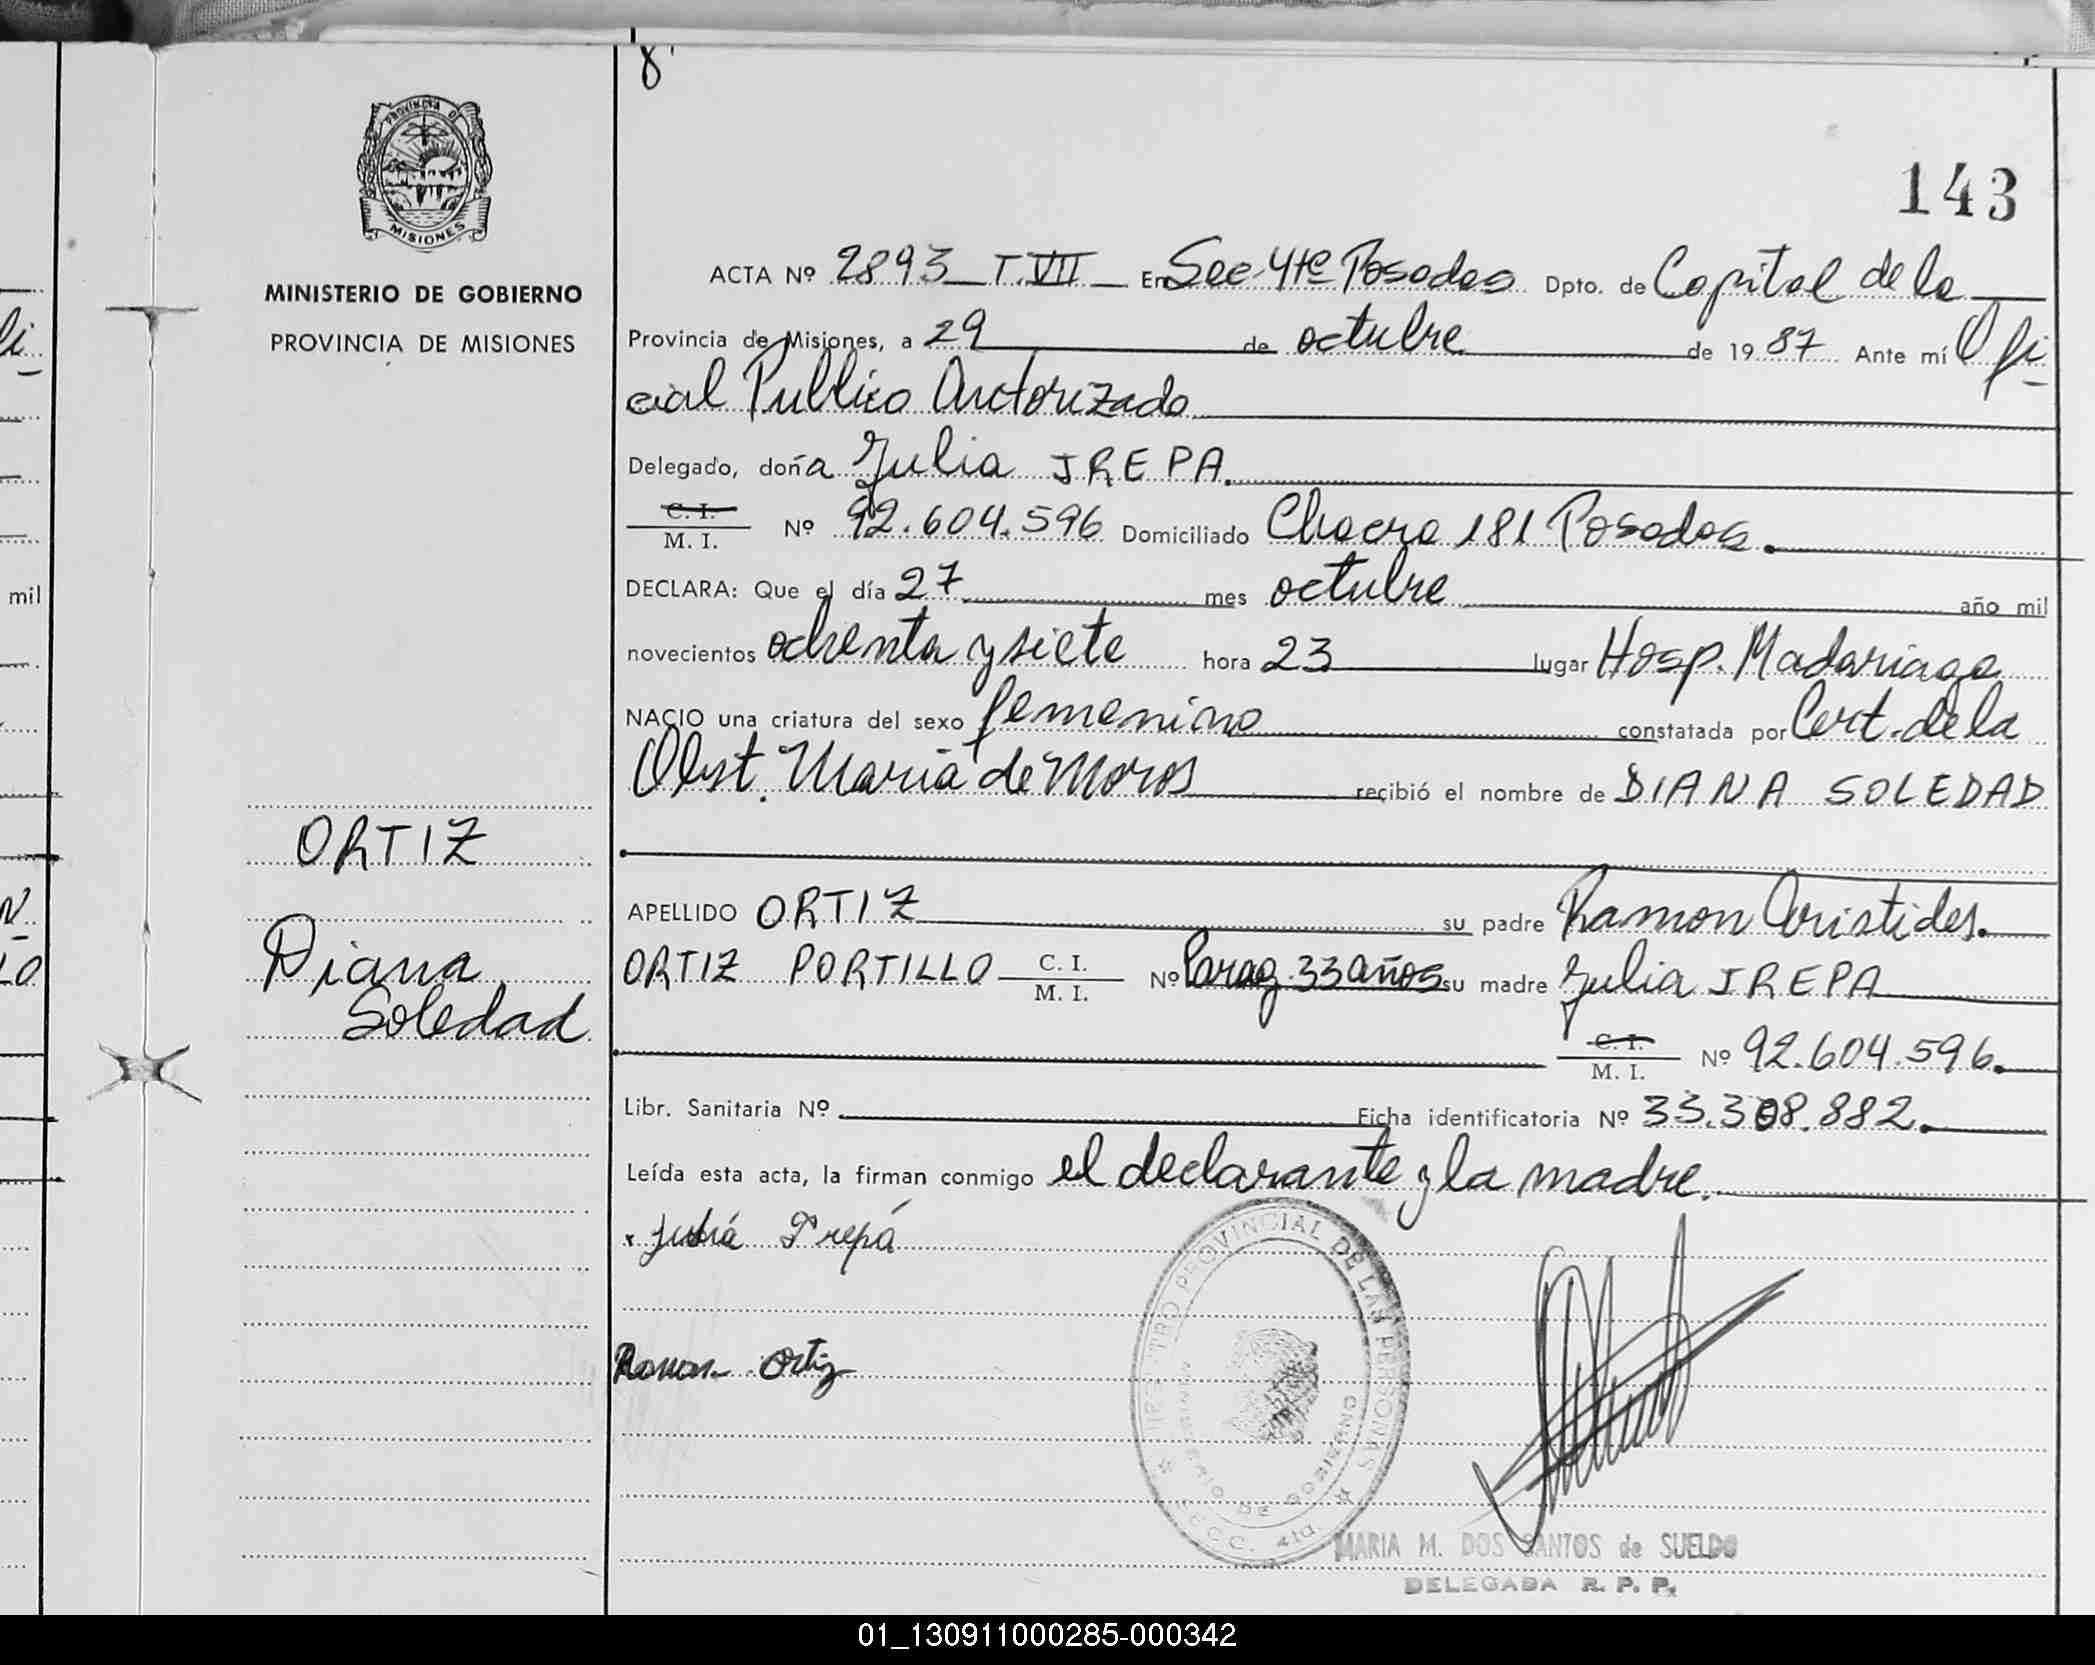 8'
143
PROVINCIA DE
MISIONES
MINISTERIO DE GOBIERNO
PROVINCIA DE MISIONES
ORTIZ
Diana
Soledad
ACTA Nº 2893 T. VII En Sec 4ta Posadas Dpto. de Capital de la
Provincia de Misiones, a 29 de octubre de 1987 Ante mí Ofi
cial Publico Autorizado
Delegado, doña Julia IREPA.
C. I. / M. I. Nº 92.604.596 Domiciliado Chacra 181 Posadas.
DECLARA: Que el día 27 mes octubre año mil
novecientos ochenta y siete hora 23 lugar Hosp. Madariaga
NACIO una criatura del sexo femenino constatada por Cert. de la
Obst. Maria de Moros recibió el nombre de DIANA SOLEDAD
APELLIDO ORTIZ su padre Ramon Aristides.
ORTIZ PORTILLO C. I. / M. I. Nº Parag. 33 años su madre Julia IREPA
C. I. / M. I. Nº 92.604.596.
Libr. Sanitaria Nº Ficha identificatoria Nº 33.308.882.
Leída esta acta, la firman conmigo el declarante y la madre.
Juliá Irepá
Ramon Ortiz
REGISTRO PROVINCIAL DE LAS PERSONAS
MINISTERIO DE GOBIERNO
4ta.
MARIA M. DOS SANTOS de SUELDO
DELEGADA R. P. P.
mil
01_130911000285-000342